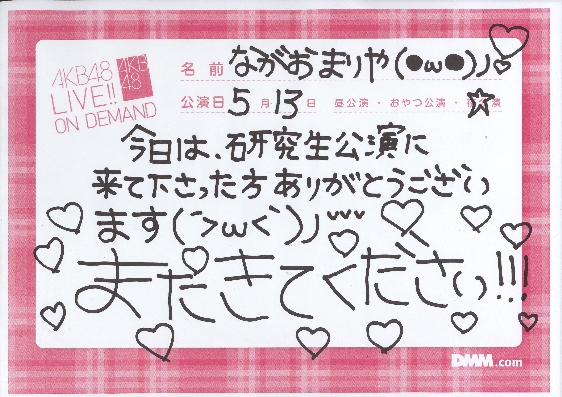 AKB48
LIVE!!
ON DEMAND
AKB
48
名前 ながおまりや(●ω●)ノ♡
公演日 5月13日 昼公演・おやつ公演・夜公演
今日は、研究生公演に
来て下さった方ありがとうござい
ます(´>ω<`)ノ
またきてください!!!
DMM.com